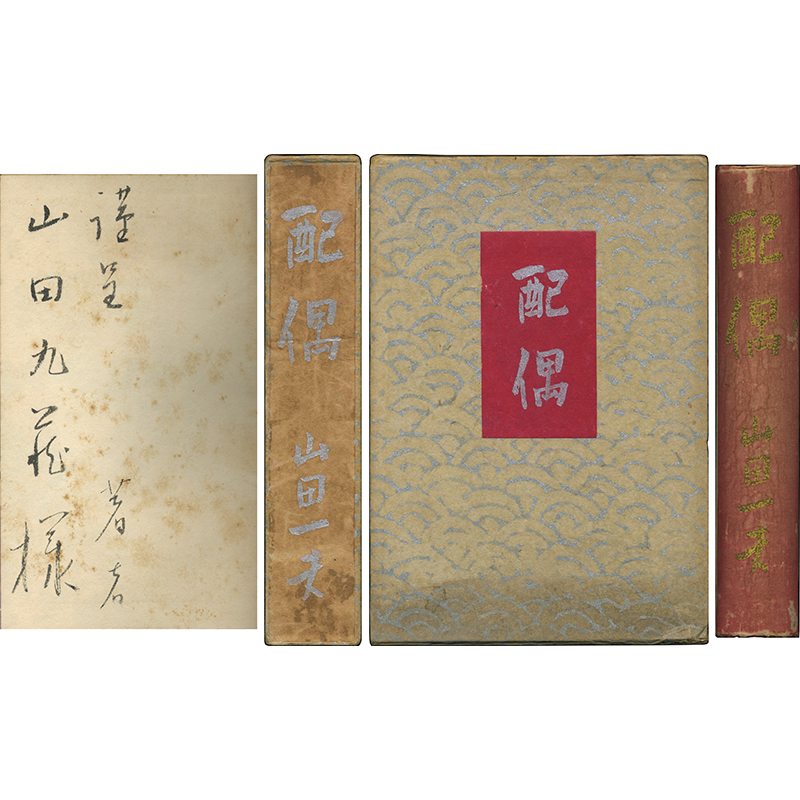 謹呈 著者
山田九蔵様
配偶 山田一夫
配偶
配偶 山田一夫